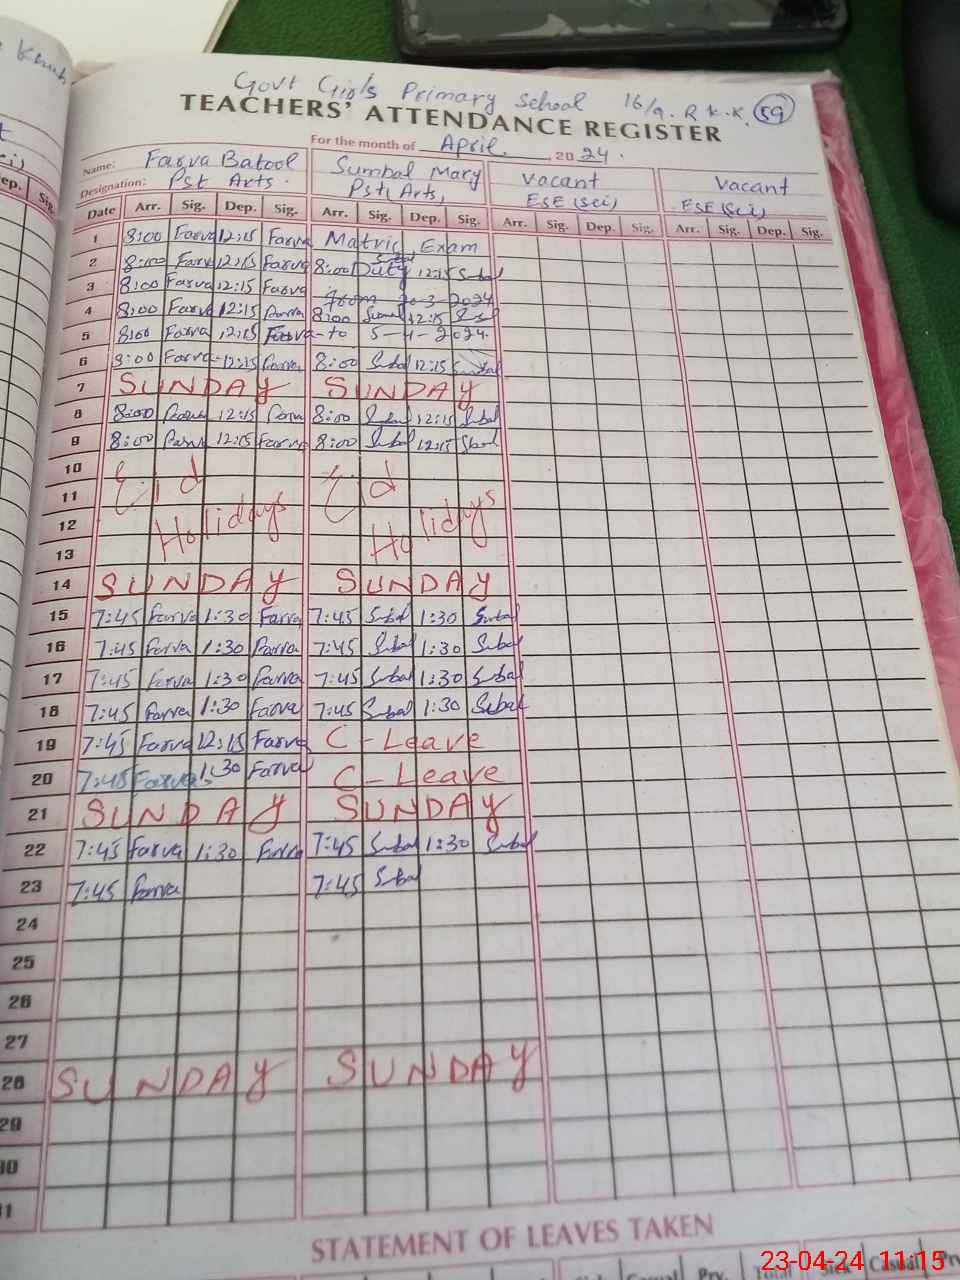 Govt Girls Primary School 16/9.R K.K. 59
TEACHERS' ATTENDANCE REGISTER
For the month of April. , 20 24.
Name: Farva Batool Sumbal Mary Vacant Vacant
Designation: Pst Arts. Pst Arts, ESE (Sci) ESE (Sci)
Date Arr. Sig. Dep. Sig. Arr. Sig. Dep. Sig. Arr. Sig. Dep. Sig. Arr. Sig. Dep. Sig.
1 8:00 Farva 12:15 Farva Matric Exam
2 8:00 Farva 12:15 Farva 8:00 Duty 12:15
3 8:00 Farva 12:15 Farva from 20-3-2024
4 8:00 Farva 12:15 Farva 8:00 12:15
5 8:00 Farva 12:15 Farva to 5-4-2024.
6 8:00 Farva 12:15 Farva 8:00 Subal 12:15 Sumbal
7 SUNDAY SUNDAY
8 8:00 Farva 12:15 Farva 8:00 Subal 12:15 Subal
9 8:00 Farva 12:15 Farva 8:00 Subal 12:15
10 Eid Eid
11
12 Holidays Holidays
13
14 SUNDAY SUNDAY
15 7:45 Farva 1:30 Farva 7:45 Subal 1:30 Subal
16 7:45 Farva 1:30 Farva 7:45 Subal 1:30 Subal
17 7:45 Farva 1:30 Farva 7:45 Subal 1:30 Subal
18 7:45 Farva 1:30 Farva 7:45 Subal 1:30 Subal
19 7:45 Farva 12:15 Farva C-Leave
20 7:45 Farva 1:30 Farva C-Leave
21 SUNDAY SUNDAY
22 7:45 Farva 1:30 Farva 7:45 Subal 1:30 Subal
23 7:45 Farva 7:45 Subal
24
25
26
27
28 SUNDAY SUNDAY
29
30
31
STATEMENT OF LEAVES TAKEN
Casual Prv. Total Sick Casual
23-04-24 11:15